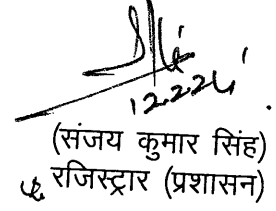 12.2.24
(संजय कुमार सिंह)
रजिस्ट्रार (प्रशासन)